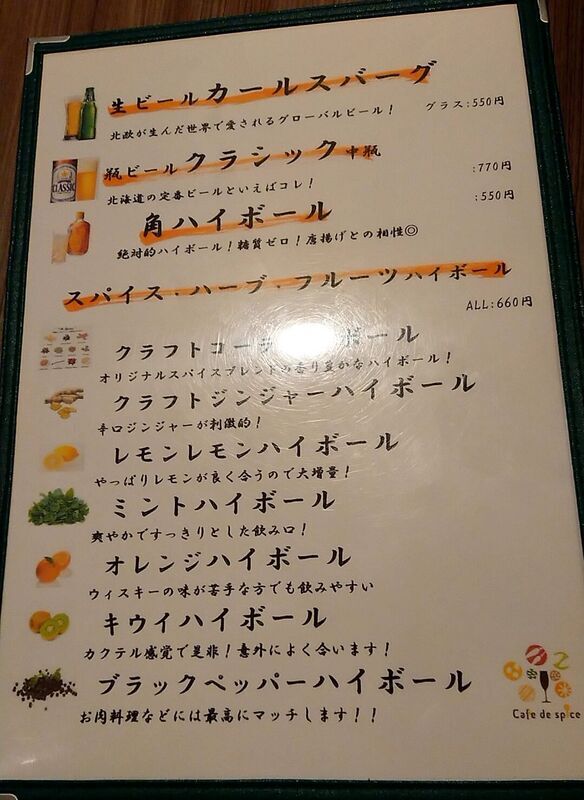 生ビールカールスバーグ
グラス:550円
北欧が生んだ世界で愛されるグローバルビール！
瓶ビールクラシック中瓶
:770円
CLASSIC
北海道の定番ビールといえばコレ！
:550円
角ハイボール
絶対的ハイボール！糖質ゼロ！唐揚げとの相性◎
スパイス・ハーブ・フルーツハイボール
ALL:660円
クラフトコーラ ボール
オリジナルスパイスブレンドの香り豊かなハイボール！
クラフトジンジャーハイボール
辛口ジンジャーが刺激的！
レモンレモンハイボール
やっぱりレモンが良く合うので大増量！
ミントハイボール
爽やかですっきりとした飲み口！
オレンジハイボール
ウィスキーの味が苦手な方でも飲みやすい
キウイハイボール
カクテル感覚で是非！意外によく合います！
ブラックペッパーハイボール
お肉料理などには最高にマッチします！！
Cafe de spice